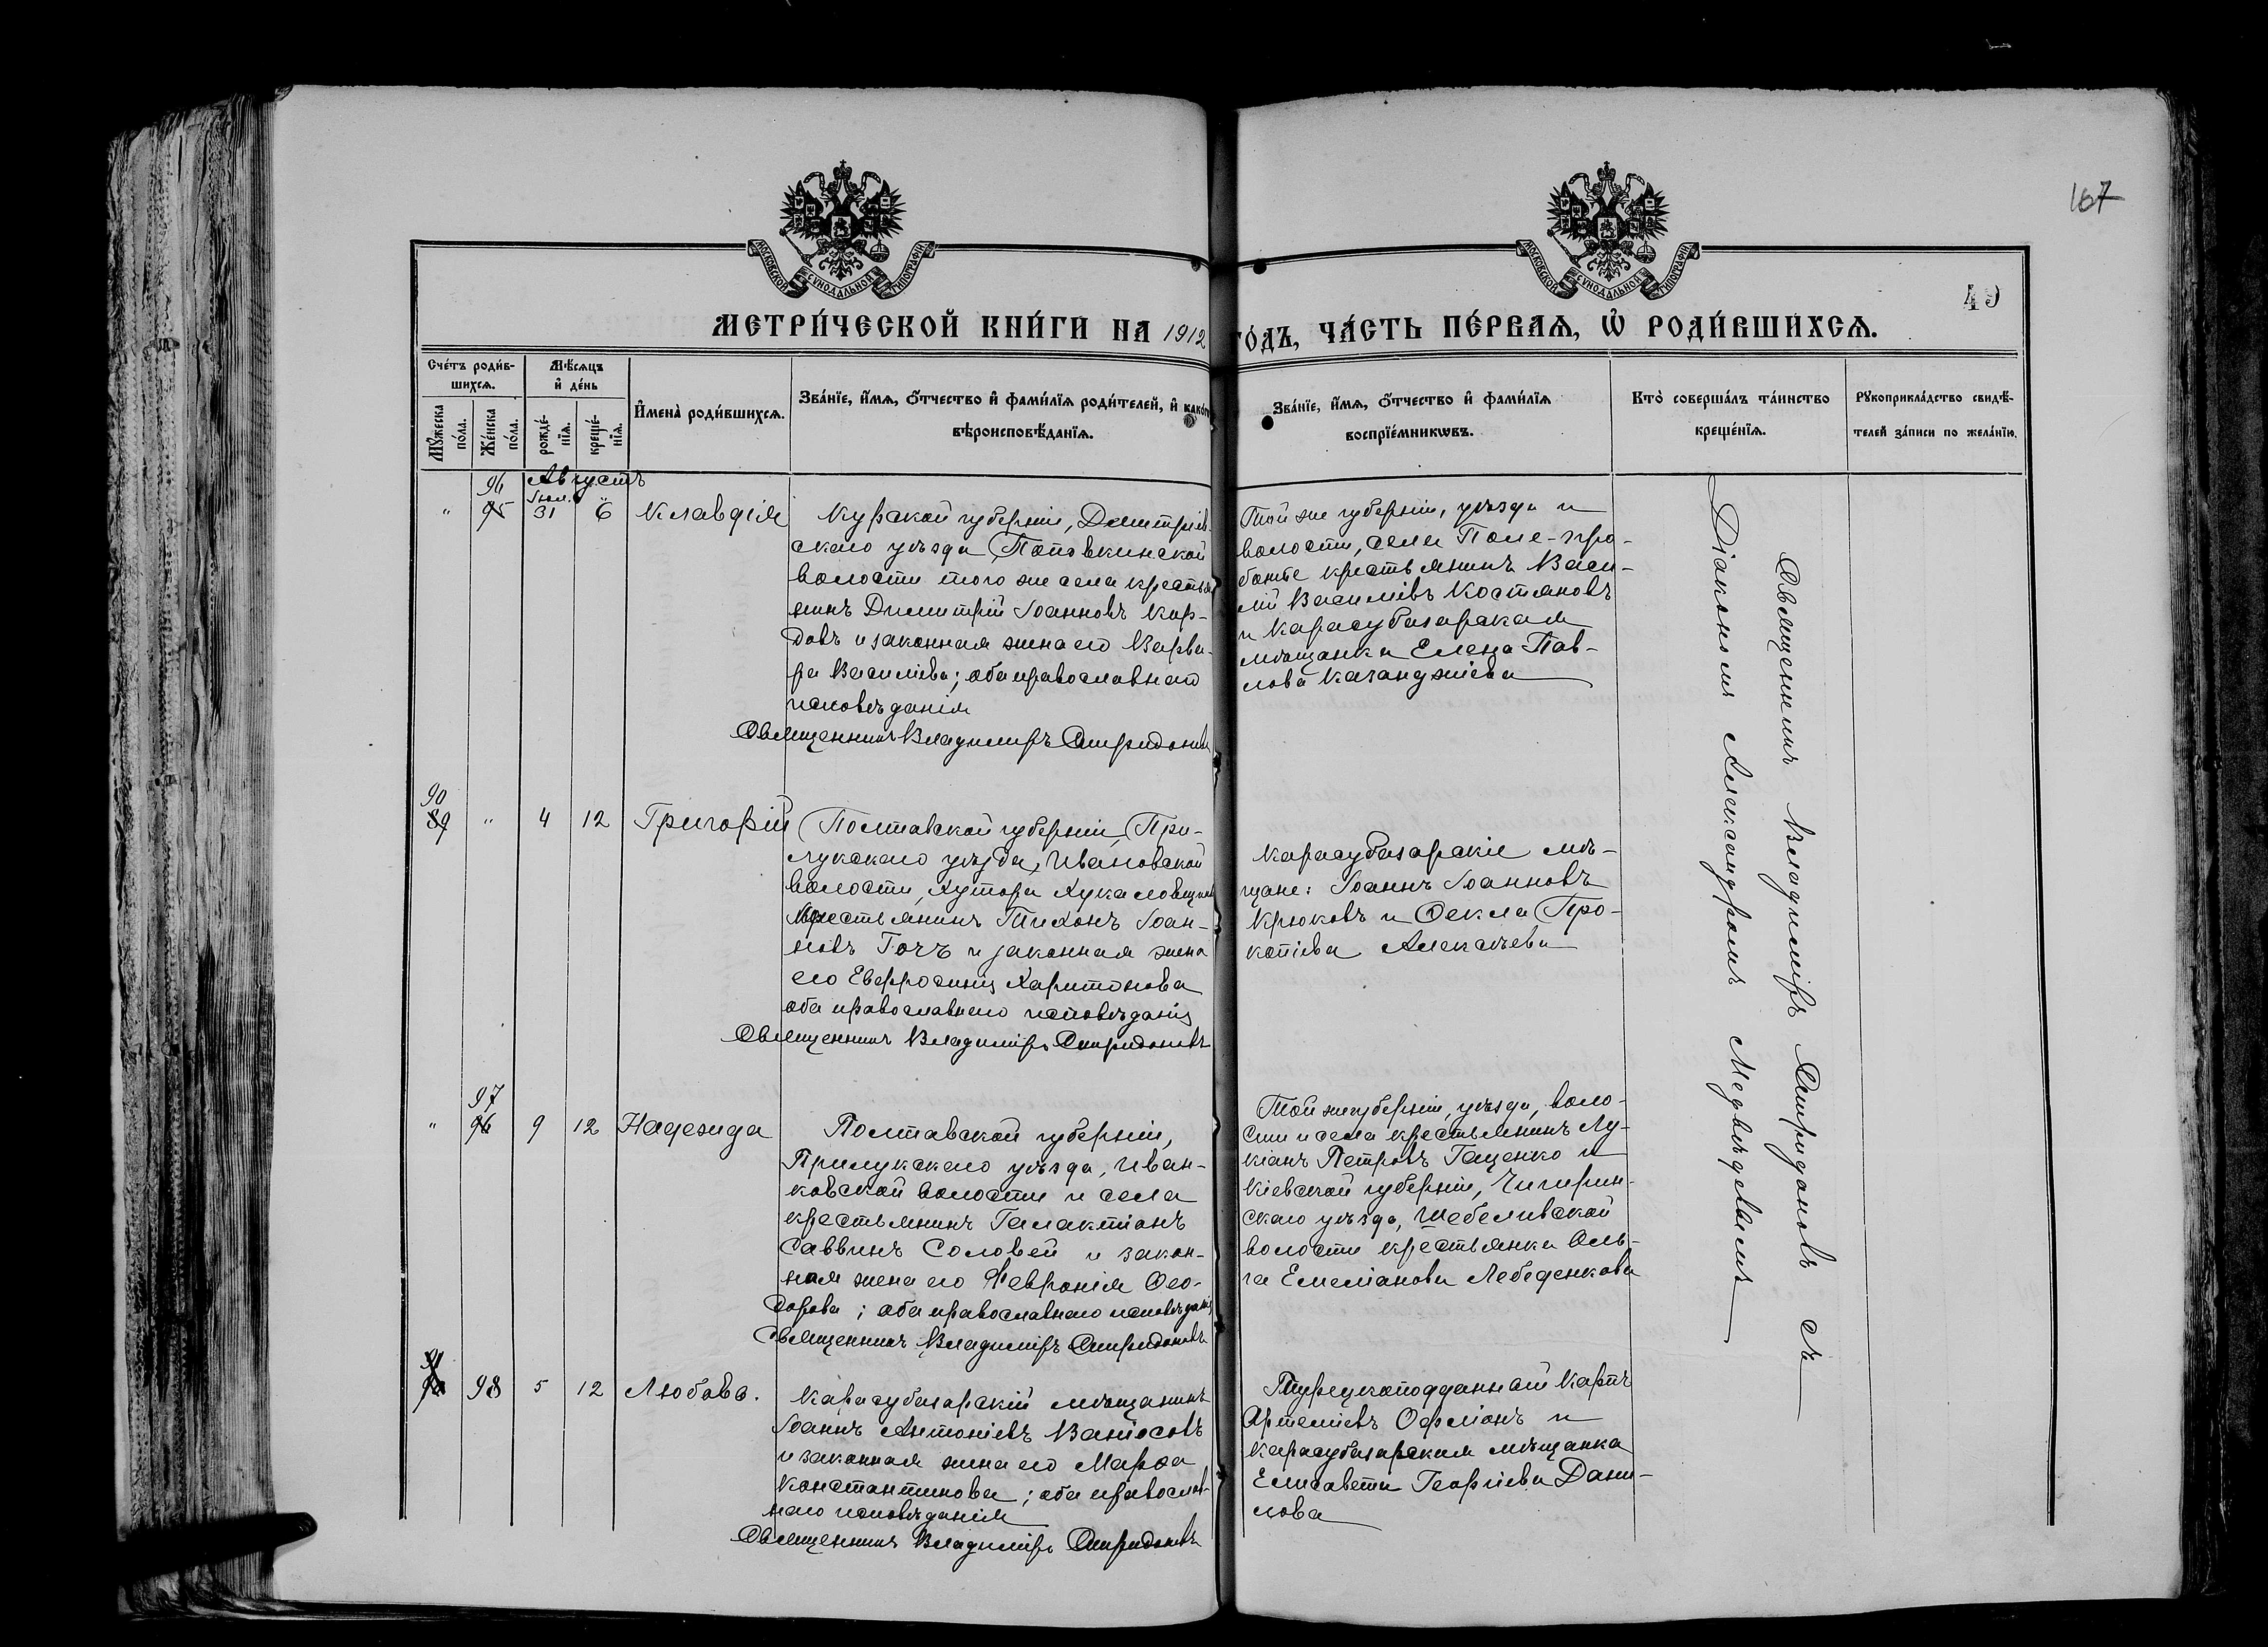 167
49
МОСКОВСКОЙ СУНОДАЛЬНОЙ ТИПОГРАФІИ
МОСКОВСКОЙ СУНОДАЛЬНОЙ ТИПОГРАФІИ
МЕТРИ́ЧЕСКОЙ КНИ́ГИ НА 1912 ГО́ДЪ, ЧА́СТЬ ПЕ́РВАѦ, Ѡ҆ РОДИ́ВШИХСѦ.
Сче́тъ роди́в-
шихсѧ.
Мꙋ́жеска по́ла.
Же́нска по́ла.
Мѣ́сѧцъ
и҆ де́нь
рожде́-
нїѧ.
креще́-
нїѧ.
И҆мена̀ роди́вшихсѧ.
Зва́нїе, и҆́мѧ, ѻ҆́тчество и҆ фами́лїѧ роди́телей, и҆ како́гѡ
вѣроисповѣ́данїѧ.
Зва́нїе, и҆́мѧ, ѻ҆́тчество и҆ фами́лїѧ
воспрїе́мникѡвъ.
Кто̀ соверша́лъ та́инство
креще́нїѧ.
Рꙋкоприкла́дство свидѣ́-
телей за́писи по жела́нїю.
Августъ
96
" 95 Іюл. 31 6 Клавдія
Курской губерніи, Димитріев-
скаго уѣзда Поповкинской
волости того же села крестья
нинъ Димитрій Іоанновъ Кар-
довъ и законная жена его Варва-
ра Васильева; оба православнаго
исповѣданія
Священникъ Владимиръ Спиридоновъ
Той же губерніи, уѣзда и
волости, села Поле-
крестьянинъ Васи-
лій Васильевъ Костяновъ
и Карасубазарская
мѣщанка Елена Пав-
лова Казанджіева
90
89 " 4 12 Григорій
Полтавской губерніи, При-
лукскаго уѣзда, Ивановской
волости, хутора
крестьянинъ Тихонъ Іоан-
новъ Гочъ и законная жена
его Евфросинія Харитонова
оба православнаго исповѣданія
Священникъ Владимиръ Спиридоновъ
Карасубазарскіе мѣ-
щане: Іоаннъ Іоанновъ
Крюковъ и Ѳекла Про-
копіева Алексѣева
97
" 96 9 12 Надежда
Полтавской губерніи,
Прилукскаго уѣзда, Иван-
ковской волости и села
крестьянинъ Галактіонъ
Саввинъ Соловей и закон-
ная жена его Февронія Ѳео-
дорова; оба православнаго исповѣданія
Священникъ Владимиръ Спиридоновъ
Той же губерніи, уѣзда, воло-
сти и села крестьянинъ Лу-
кіанъ Петровъ Гаценко и
Кіевской губерніи, Чигирин-
скаго уѣзда, Шебеливской
волости крестьянка Оль-
га Емеліанова Лебеденкова
91
90 98 5 12 Любовь.
Карасубазарскій мѣщанинъ
Іоаннъ Антоніевъ Ваніосовъ
и законная жена его Марѳа
Константинова; оба православ-
наго исповѣданія
Священникъ Владимиръ Спиридоновъ
Турецкоподданный Карпъ
Артеміевъ Офліонъ и
Карасубазарская мѣщанка
Елисавета Георгіева Дани-
лова
Священникъ Владимиръ Спиридоновъ съ
Діакономъ Александромъ Медвѣдевымъ